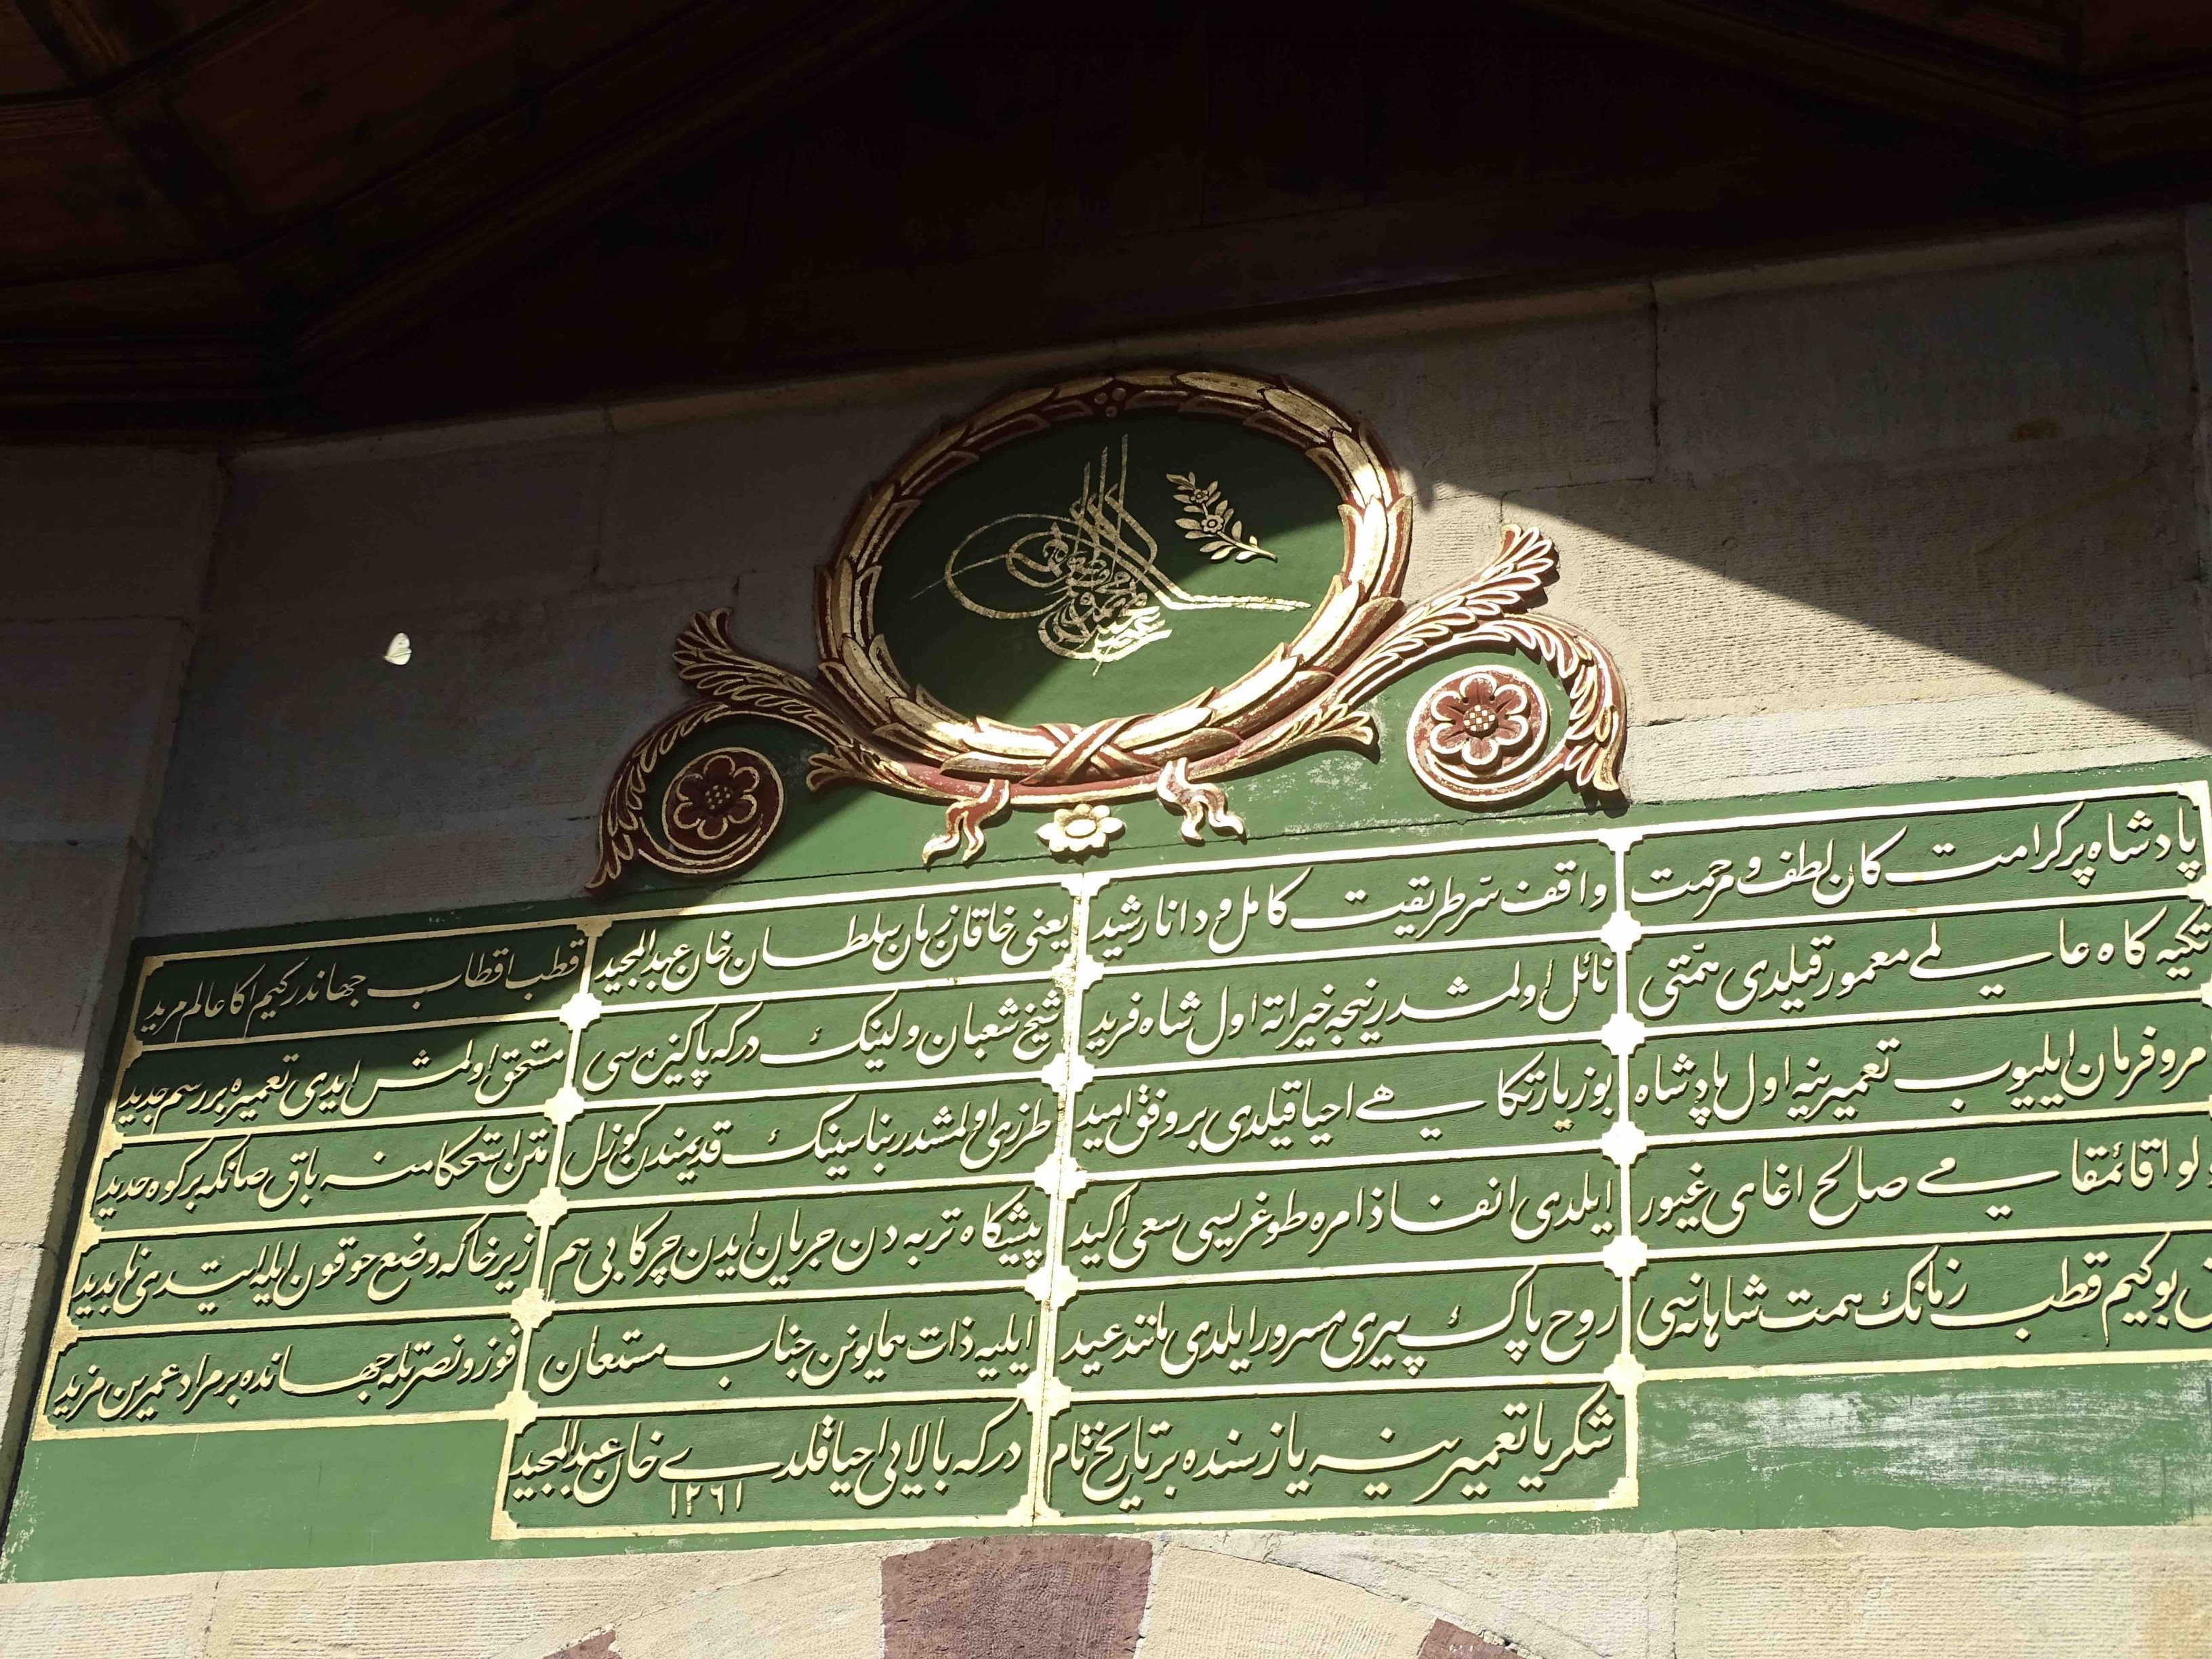 پادشاه پر کرامت کان لطف و مرحمت واقف سر طریقت کامل و دانا رشید یعنی خاقان زمان سلطان خان عبدالمجید قطب اقطاب جهاندر کیم اکا عالم مرید
تکیه کاه عالمی معمور قیلدی همتی نائل اولمشدر نیجه خیراته اول شاه فرید شیخ شعبان ولینک درکه پاکیزه سی مستحق اولمش ایدی تعمیره بر رسم جدید
امر و فرمان ایلیوب تعمیرینه اول پادشاه بو زیارتکاهی احیا قیلدی بر وفق امید طرزی اولمشدر بناسینک قدیمندن کوزل متن استحکامنه باق صانکه بر کوه حدید
قائمقامی صالح اغای غیور ایلدی انفاذ امره طوغریسی سعی اکید پیشکاه تربه دن جریان ایدن چرکابی هم زیر خاکه وضع حوقون ایله ایتدی نابدید
بو کیم قطب زمانک همت شاهانه سی روح پاک پیری مسرور ایلدی مانند عید ایلیه ذات همایونن جناب مستعان فوز و نصرتله جهانده بر مراد عمرین مزید
شکریا تعمیرینه یازسنده بر تاریخ تام درکه بالایی احیا قلدی خان عبدالمجید
١٢٦١